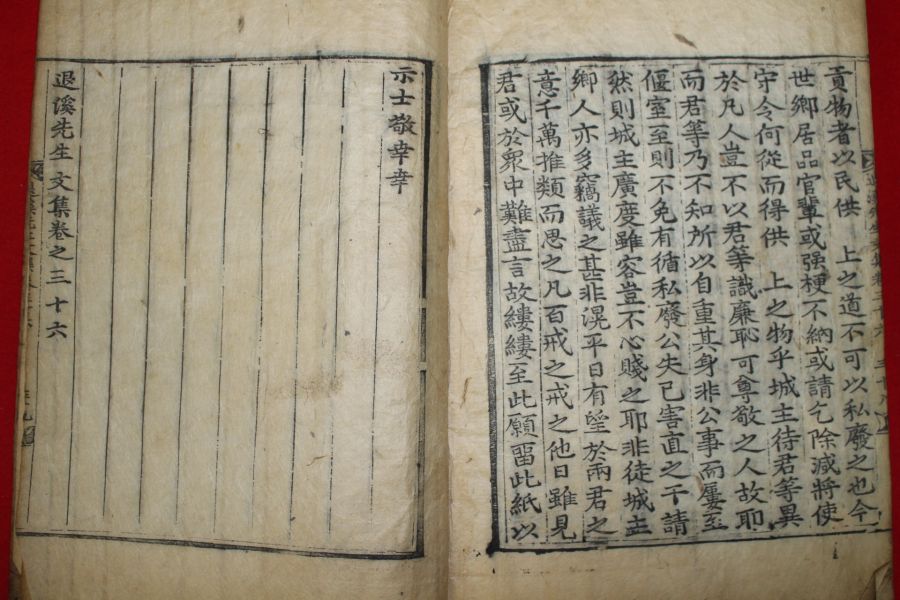 貢物者以民供 上之道不可以私廢之也今
世鄉居品官輩或强梗不納或請乞除减將使
守令何從而得供 上之物乎城主待君等異
於凡人豈不以君等識廉恥可尊敬之人故耶
而君等乃不知所以自重其身非公事而屢至
偃室至則不免有循私廢公失已害直之干請
然則城主廣度雖容豈不心賤之耶非徒城主
鄉人亦多竊議之甚非滉平日有望於兩君之
意千萬推類而思之凡百戒之戒之他日雖見
君或於衆中難盡言故縷縷至此願留此紙以
示士敬幸幸
退溪先生文集卷之三十六